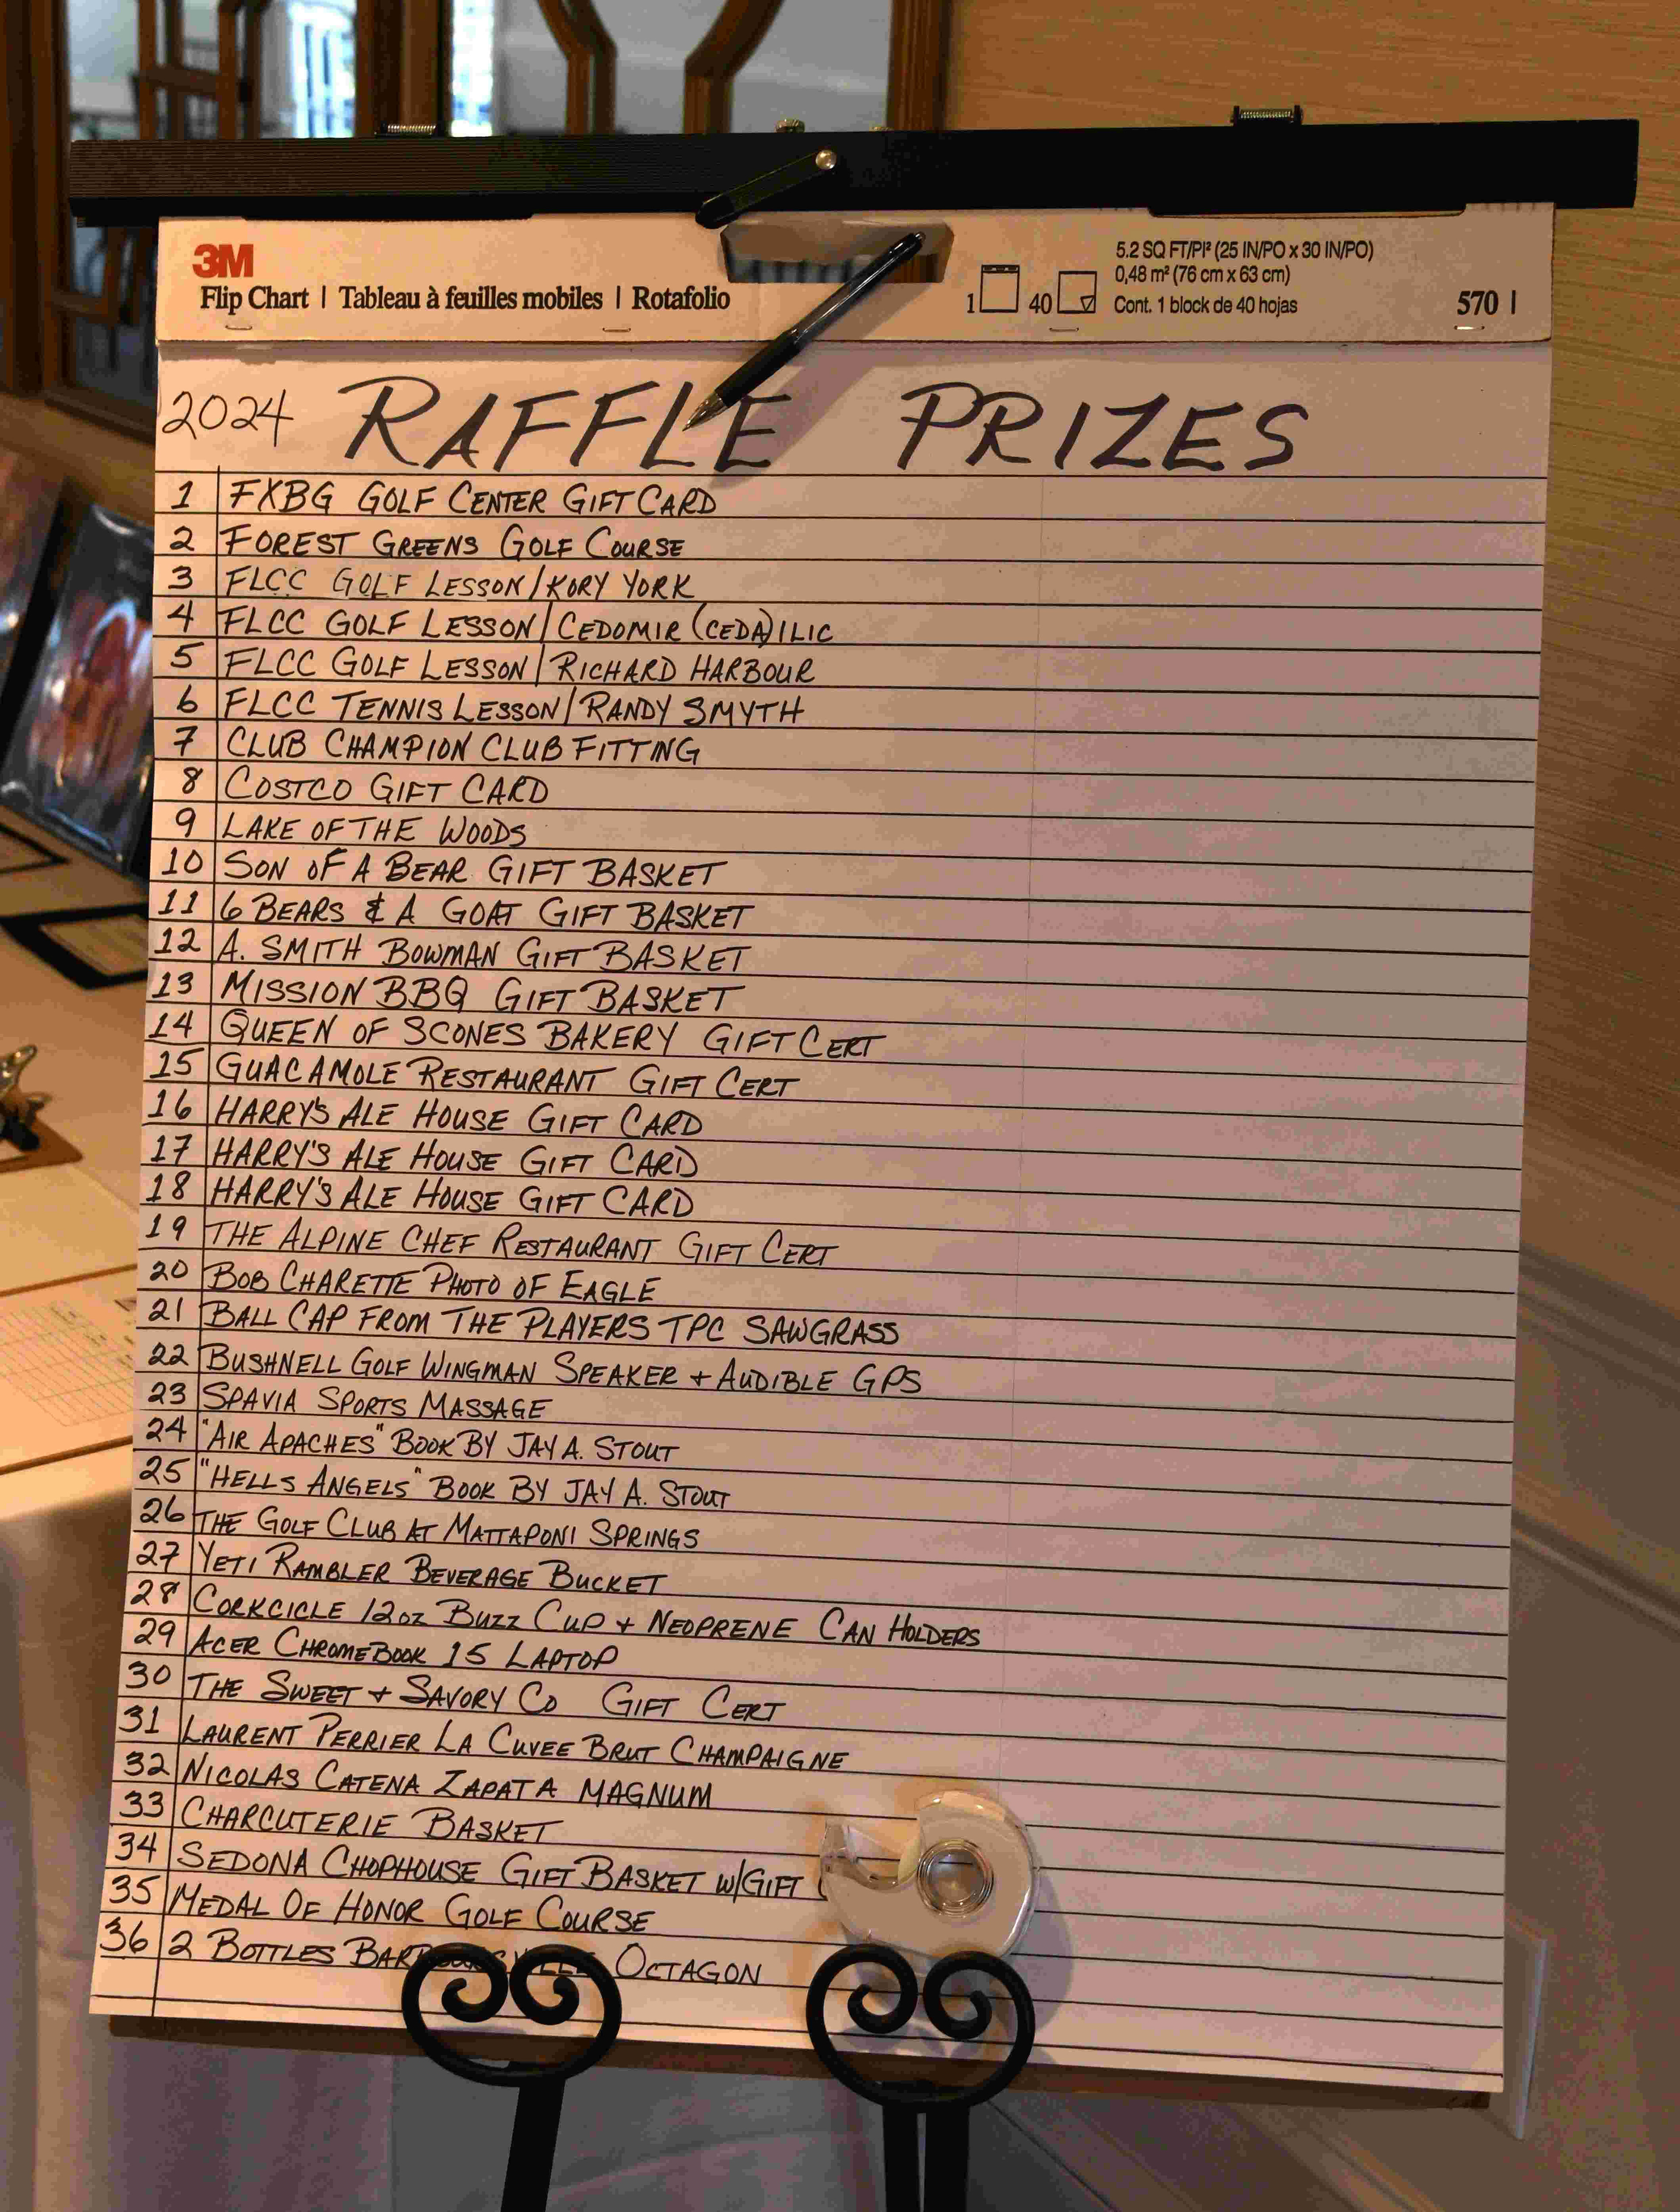 3M
Flip Chart | Tableau à feuilles mobiles | Rotafolio
1 40
5.2 SQ FT/PI² (25 IN/PO x 30 IN/PO)
0,48 m² (76 cm x 63 cm)
Cont. 1 block de 40 hojas
570 |
2024 RAFFLE PRIZES
1 FXBG GOLF CENTER GIFT CARD
2 FOREST GREENS GOLF COURSE
3 FLCC GOLF LESSON/KORY YORK
4 FLCC GOLF LESSON/CEDOMIR (CEDA) ILIC
5 FLCC GOLF LESSON/RICHARD HARBOUR
6 FLCC TENNIS LESSON/RANDY SMYTH
7 CLUB CHAMPION CLUB FITTING
8 COSTCO GIFT CARD
9 LAKE OF THE WOODS
10 SON OF A BEAR GIFT BASKET
11 6 BEARS & A GOAT GIFT BASKET
12 A. SMITH BOWMAN GIFT BASKET
13 MISSION BBQ GIFT BASKET
14 QUEEN OF SCONES BAKERY GIFT CERT
15 GUACAMOLE RESTAURANT GIFT CERT
16 HARRY'S ALE HOUSE GIFT CARD
17 HARRY'S ALE HOUSE GIFT CARD
18 HARRY'S ALE HOUSE GIFT CARD
19 THE ALPINE CHEF RESTAURANT GIFT CERT
20 BOB CHARETTE PHOTO OF EAGLE
21 BALL CAP FROM THE PLAYERS TPC SAWGRASS
22 BUSHNELL GOLF WINGMAN SPEAKER + AUDIBLE GPS
23 SPAVIA SPORTS MASSAGE
24 "AIR APACHES" BOOK BY JAY A. STOUT
25 "HELLS ANGELS" BOOK BY JAY A. STOUT
26 THE GOLF CLUB AT MATTAPONI SPRINGS
27 YETI RAMBLER BEVERAGE BUCKET
28 CORKCICLE 12OZ BUZZ CUP + NEOPRENE CAN HOLDERS
29 ACER CHROMEBOOK 15 LAPTOP
30 THE SWEET + SAVORY CO GIFT CERT
31 LAURENT PERRIER LA CUVEE BRUT CHAMPAIGNE
32 NICOLAS CATENA ZAPATA MAGNUM
33 CHARCUTERIE BASKET
34 SEDONA CHOPHOUSE GIFT BASKET W/GIFT
35 MEDAL OF HONOR GOLF COURSE
36 2 BOTTLES OCTAGON